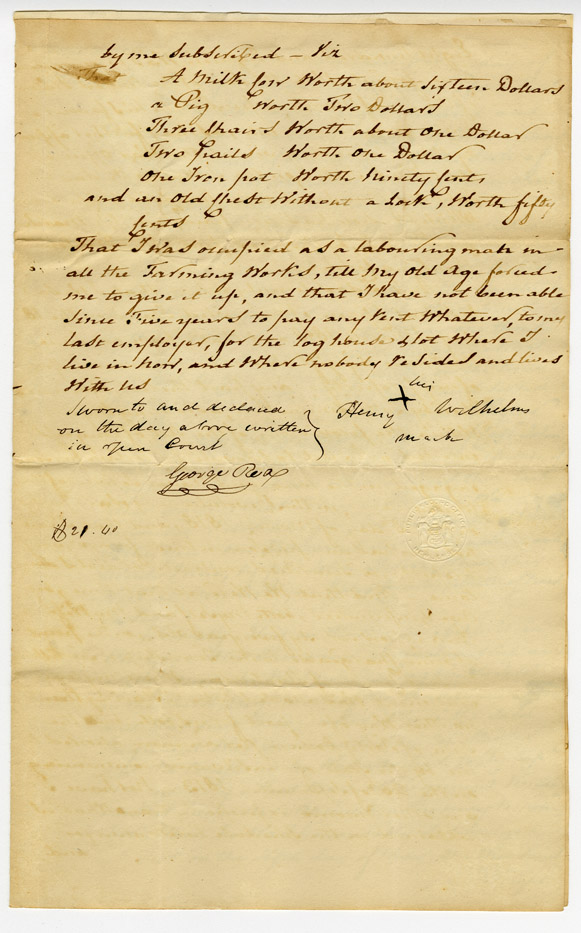 by me Subscribed – Viz
That
A Milk Cow Worth about Sixteen Dollars
a Pig Worth Two Dollars
Three Chairs Worth about One Dollar
Two pails Worth One Dollar
One Iron pot Worth Ninety Cents
and an Old Chest Without a Lock, Worth fifty
Cents
That I Was occupied as a labouring man in
all the Farming Works, till My Old Age forced
me to give it up, and that I have not been able
Since Five years to pay any Rent Whatever, to my
last employer, for the log house & lot Where I
live in Now, and Where nobody Resides and lives
With us
Sworn to and declared
on the day above written
in open Court
his
Henry X Wilhelms
mark
George Rex
$21.40